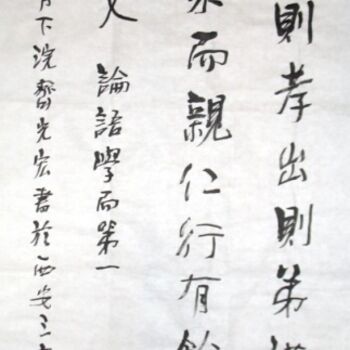 則孝出則弟謹
眾而親仁行有餘
文 論語學而第一
月下浣 齊光宏書於西安三